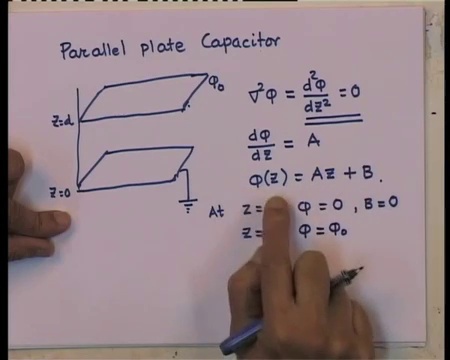 Parallel plate Capacitor
φ₀
z=d
z=0
∇²φ = d²φ/dz² = 0
dφ/dz = A
φ(z) = Az + B.
At z= φ=0, B=0
z= φ=φ₀